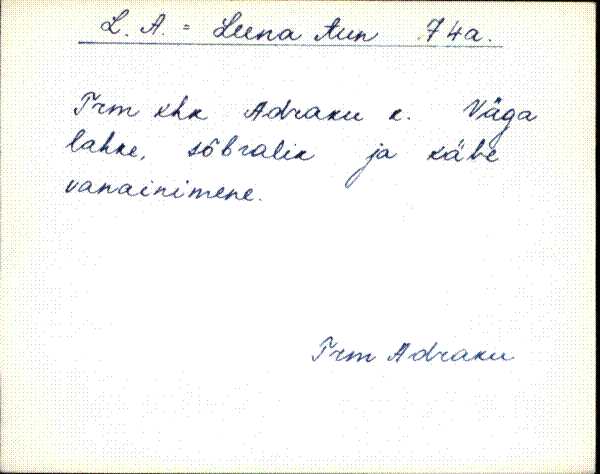 L. A. = Leena Aun 74a.
Trm khk Adraku k. Väga
lahke, sõbralik ja käbe
vanainimene.
Trm Adraku